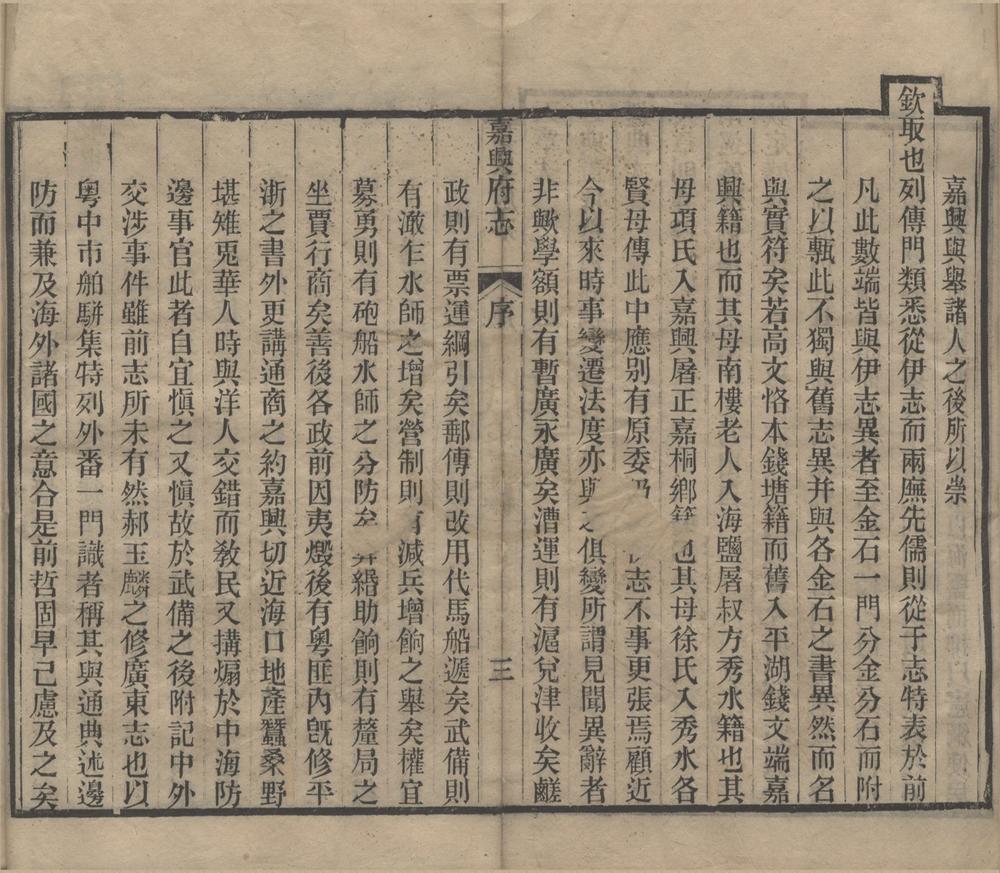 嘉興與舉諸人之後所以崇
欽取也列傳門類悉從伊志而兩廡先儒則從于志特表於前
凡此數端皆與伊志異者至金石一門分金分石而附
之以甎此不獨與舊志異并與各金石之書異然而名
與實符矣若高文恪本錢塘籍而舊入平湖錢文端嘉
興籍也而其母南樓老人入海鹽屠叔方秀水籍也其
母項氏入嘉興屠正嘉桐鄉籍也其母徐氏入秀水各
賢母傳此中應別有原委志不事更張焉顧近
今以來時事變遷法度亦與之俱變所謂見聞異辭者
非歟學額則有暫廣永廣矣漕運則有滬兌津收矣鹺
嘉興府志 序 三
政則有票運綱引矣郵傳則改用代馬船遞矣武備則
有澉乍水師之增矣營制則有減兵增餉之舉矣權宜
募勇則有砲船水師之分防矣緡助餉則有釐局之
坐賈行商矣善後各政前因夷燬後有粵匪內旣修平
浙之書外更講通商之約嘉興切近海口地產蠶桑野
堪雉兎華人時與洋人交錯而敎民又搆煽於中海防
邊事官此者自宜愼之又愼故於武備之後附記中外
交涉事件雖前志所未有然郝玉麟之修廣東志也以
粵中市舶駢集特列外番一門識者稱其與通典述邊
防而兼及海外諸國之意合是前哲固早已慮及之矣